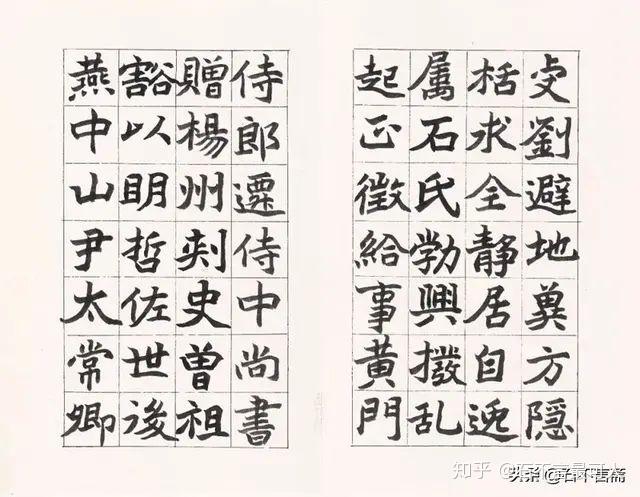 虔劉避地冀方隱
栝求全靜居自逸
属石氏勃興撥乱
起正徵給事黄門
侍郎遷侍中尚書
贈楊州刾史曾祖
豁以明哲佐世後
燕中山尹太常卿
知乎
头条